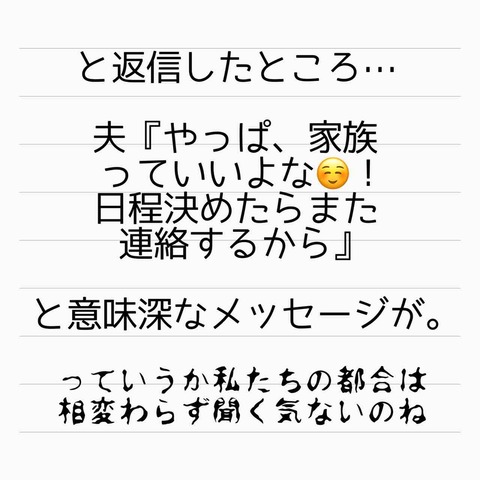 と返信したところ…
夫『やっぱ、家族
っていいよな☺️！
日程決めたらまた
連絡するから』
と意味深なメッセージが。
っていうか私たちの都合は
相変わらず聞く気ないのね